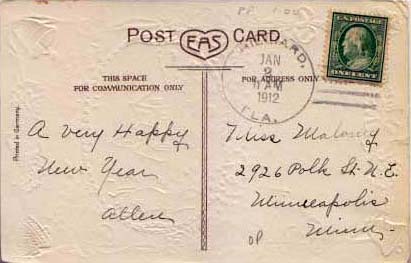 POST EAS CARD
THIS SPACE
FOR COMMUNICATION ONLY
FOR ADDRESS ONLY
HILLIARD,
JAN
2
11 AM
1912
FLA.
U.S. POSTAGE
ONE CENT
Printed in Germany.
A Very Happy
New Year
Allen
Miss Malony
2926 Polk St. N.E.
Minneapolis
Minn.
OP